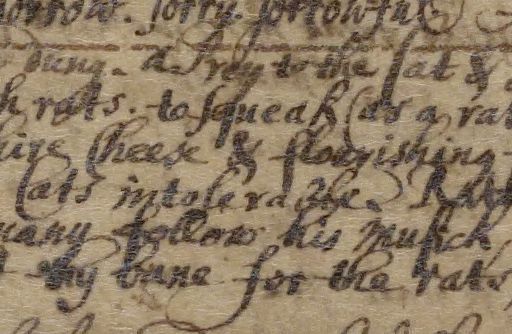 sorrow. sorry. sorrowful
dung. a Prey to the Cat &
rats. to squeak as a rat
Cheese & flourishing
Cats intolerable. Rats
many follow his musick
thy bane for the rats